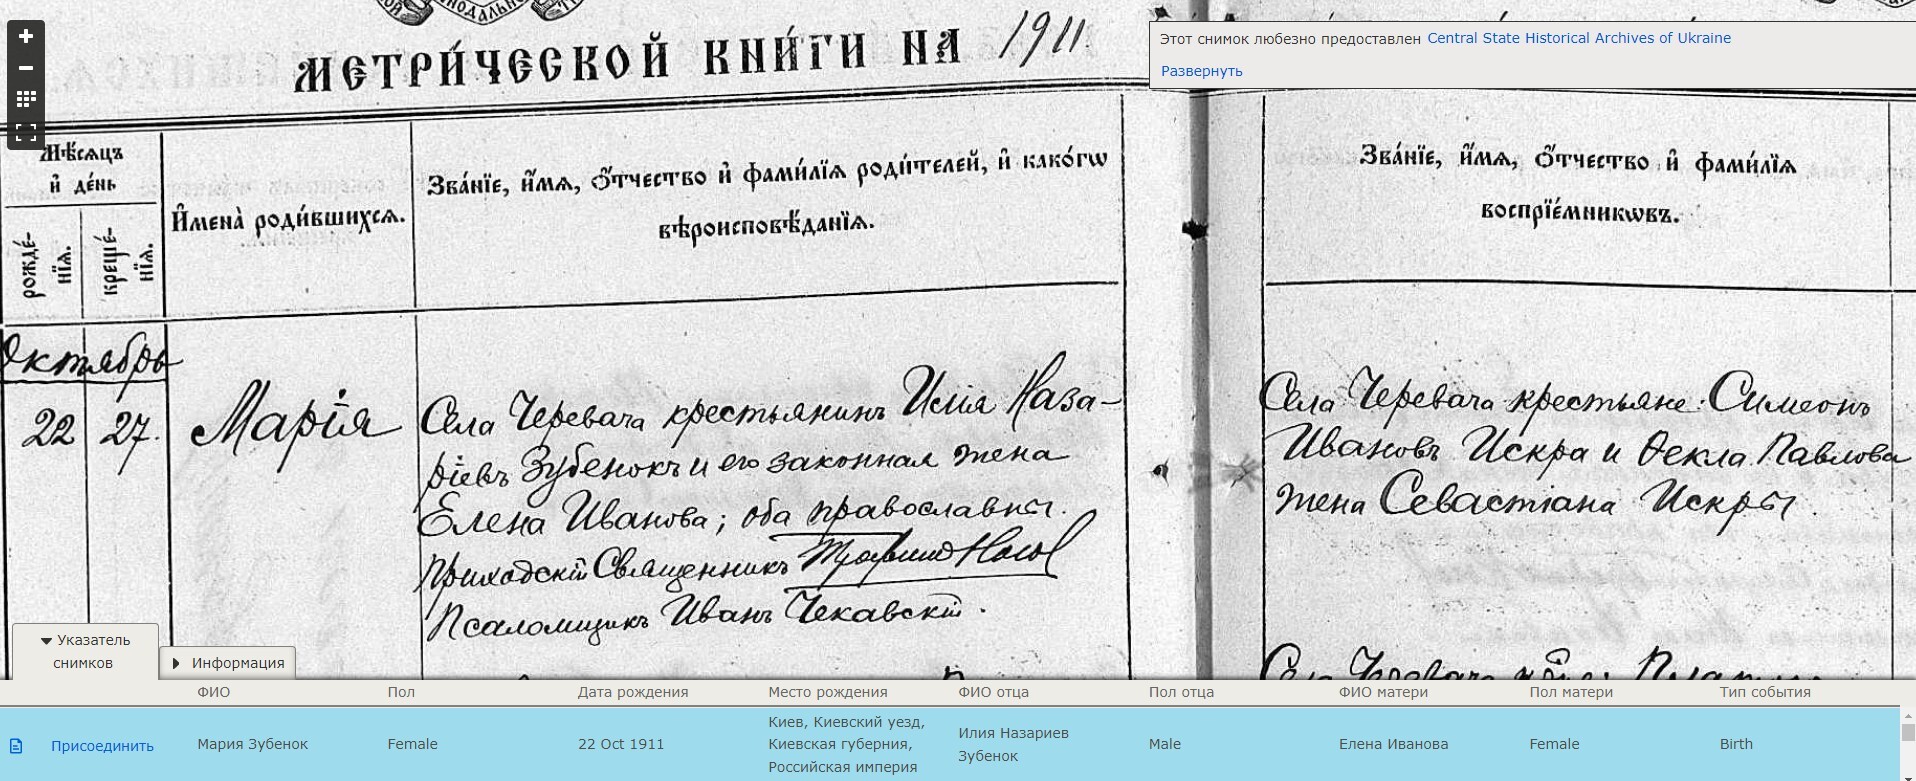 МЕТРИ́ЧЕСКОЙ КНИ́ГИ НА 1911.
Этот снимок любезно предоставлен Central State Historical Archives of Ukraine
Развернуть
Мѣ́сѧцъ
и҆ де́нь
рожде́-
нїѧ.
креще́-
нїѧ.
И҆мена̀ роди́вшихсѧ.
Зва́нїе, и҆́мѧ, ѻ҆́тчество и҆ фами́лїѧ роди́телей, и҆ како́гѡ
вѣроисповѣ́данїѧ.
Зва́нїе, и҆́мѧ, ѻ҆́тчество и҆ фами́лїѧ
воспрїе́мникѡвъ.
Октябрь
22 27.
Марія
Села Черевача крестьянинъ Илія Наза-
ріевъ Зубенокъ и его законная жена
Елена Иванова; оба православны.
Приходскій Священникъ
Псаломщикъ Иванъ Чекавскій.
Села Черевача крестьяне: Симеонъ
Ивановъ Искра и Ѳекла Павлова
жена Севастіана Искры.
Села Черевача
Указатель
снимков
Информация
ФИО Пол Дата рождения Место рождения ФИО отца Пол отца ФИО матери Пол матери Тип события
Присоединить
Мария Зубенок
Female
22 Oct 1911
Киев, Киевский уезд,
Киевская губерния,
Российская империя
Илия Назариев
Зубенок
Male
Елена Иванова
Female
Birth